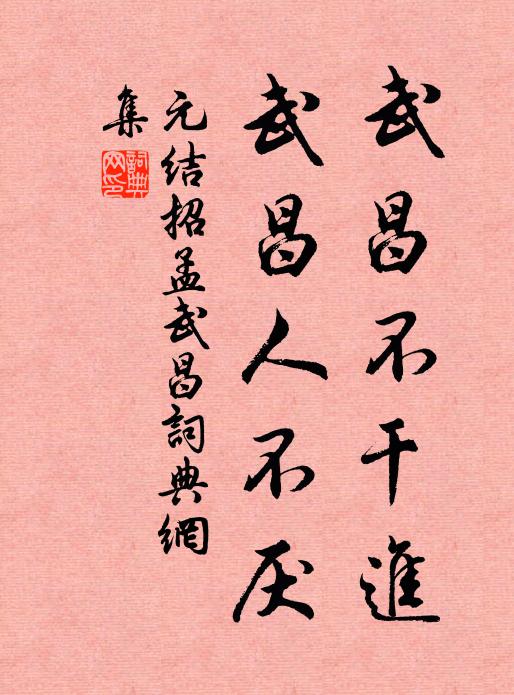 武昌不干進
武昌人不厌
元结招孟武昌詞典網
集
詞典
网印